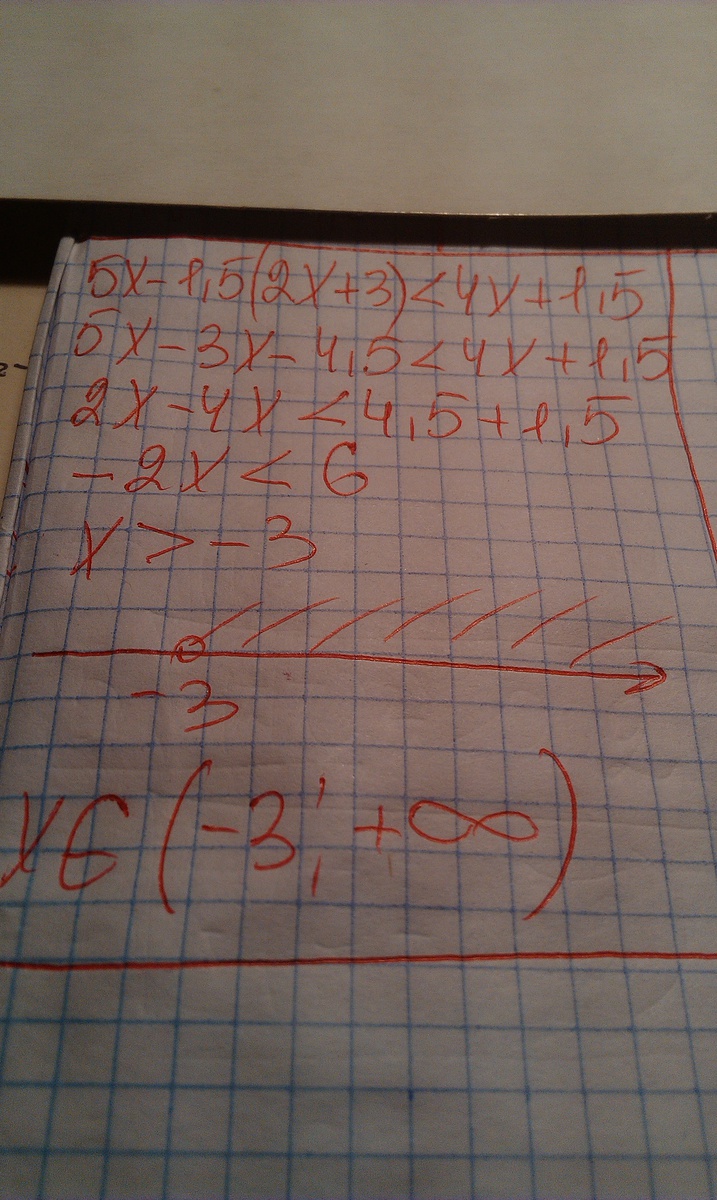 5x-1,5(2x+3)<4x+1,5
5x-3x-4,5<4x+1,5
2x-4x<4,5+1,5
-2x<6
x>-3
-3
x∈(-3;+∞)